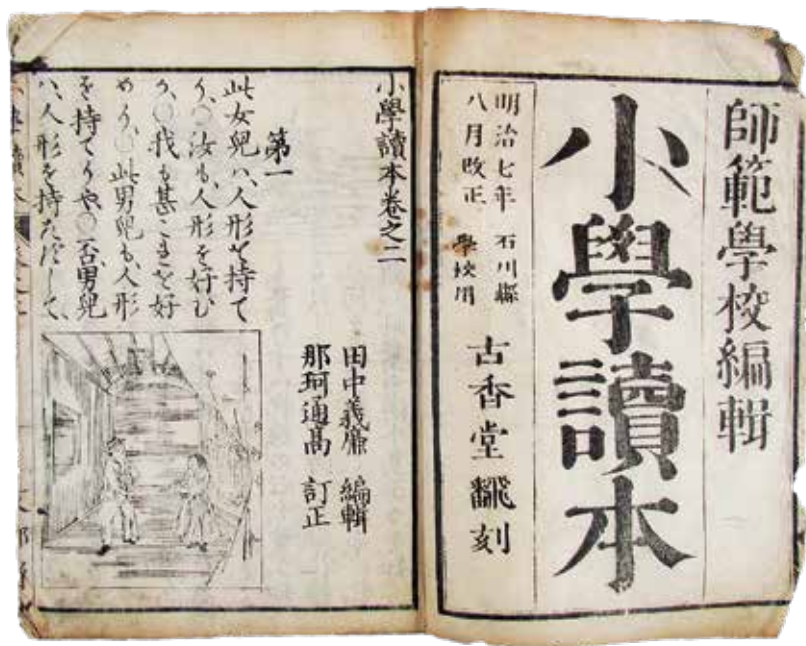 師範學校編輯
小學讀本
明治七年 石川縣
八月改正 學校用
古香堂 飜刻
小學讀本卷之二
田中義廉 編輯
那珂通高 訂正
第一
此女兒ハ、人形を持て
り、○汝も、人形を好む
か、○我も甚これを好
めり、○此男兒も、人形
を持てりや、○否、男兒
ハ、人形を持たずして、